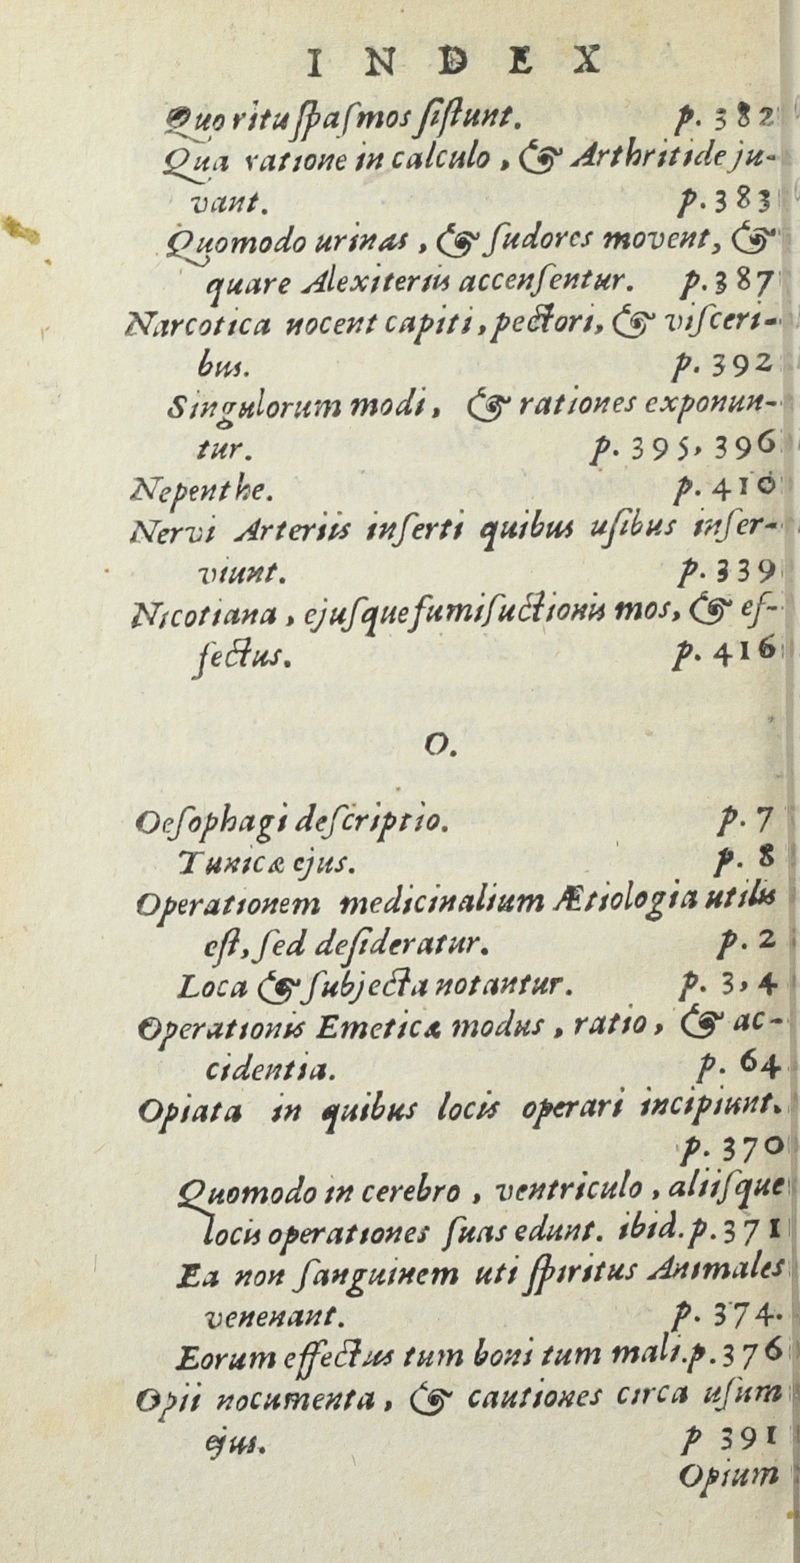 INDEX
Quo ritu ſpaſmos ſiſtunt. p. 382
Qua ratione in calculo, & Arthritide ju-
vant. p. 383
Quomodo urinas, & ſudores movent, &
quare Alexiteriis accenſentur. p. 387
Narcotica nocent capiti, pectori, & viſceri-
bus. p. 392
Singulorum modi, & rationes exponun-
tur. p. 395, 396
Nepenthe. p. 410
Nervi Arteriis inſerti quibus uſibus inſer-
viunt. p. 339
Nicotiana, ejuſque fumiſuctionis mos, & ef-
fectus. p. 416
O.
Oeſophagi deſcriptio. p. 7
Tunicæ ejus. p. 8
Operationem medicinalium Ætiologia utilis
eſt, ſed deſideratur. p. 2
Loca & ſubjecta notantur. p. 3, 4
Operationis Emeticæ modus, ratio, & ac-
cidentia. p. 64
Opiata in quibus locis operari incipiunt.
p. 370
Quomodo in cerebro, ventriculo, aliiſque
locis operationes ſuas edunt. ibid. p. 371
Ea non ſanguinem uti ſpiritus Animales
venenant. p. 374.
Eorum effectus tum boni tum mali. p. 376
Opii nocumenta, & cautiones circa uſum
ejus. p 391
Opium